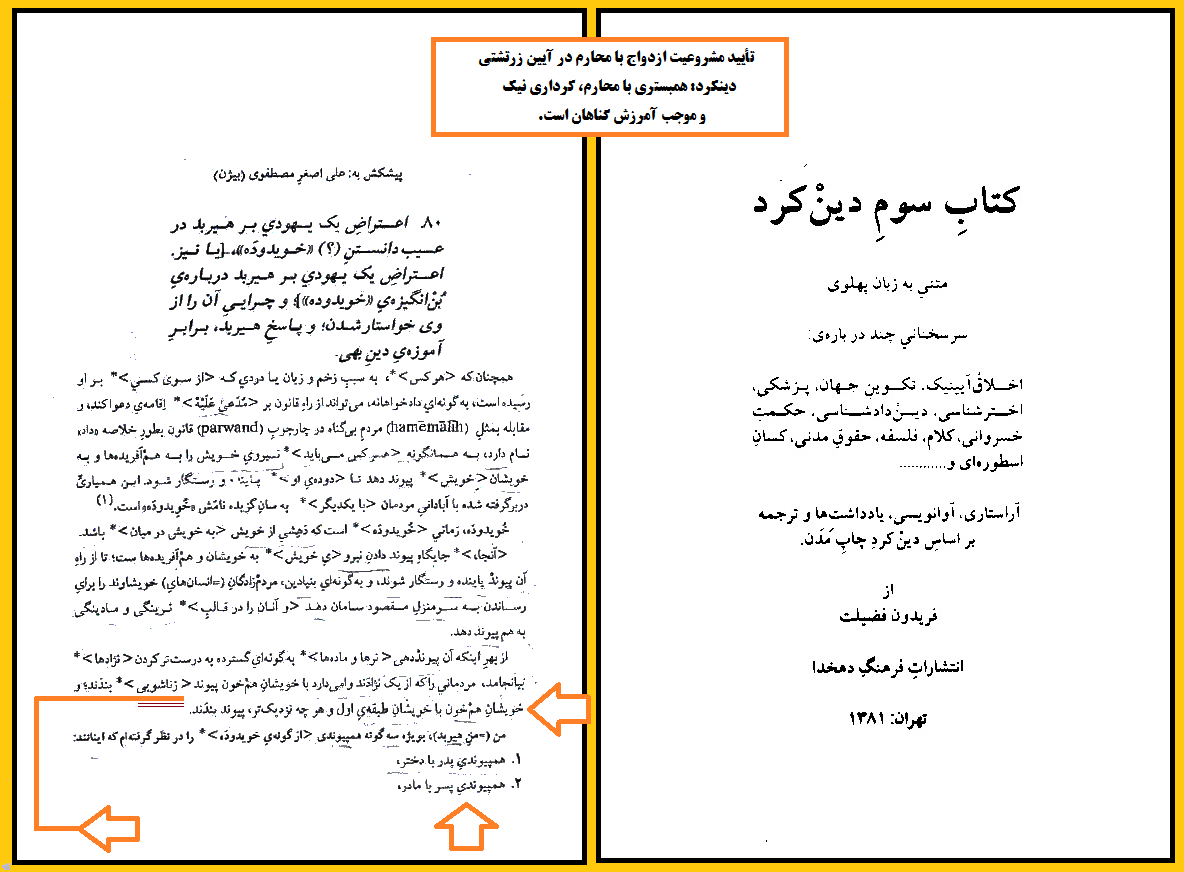 تأیید مشروعیت ازدواج با محارم در آیین زرتشتی
دینکرد: همبستری با محارم، کرداری نیک
و موجب آمرزش گناهان است.
کتابِ سومِ دینْ‌کَرد
متنیِ به زبان پهلوی
سرسخنانیِ چند در باره‌ی:
اخلاقْ آیینیک، تکوینِ جهان، پزشکی،
اخترشناسی، دینْ دادشناسی، حکمتِ
خسروانی، کلام، فلسفه، حقوقِ مدنی، کسانِ
اسطوره‌ای و............
آراستاری، آوانویسی، یادداشت‌ها و ترجمه
بر اساسِ دینْ‌کردِ چاپِ مَدَن.
از
فریدون فضیلت
انتشاراتِ فرهنگِ دهخدا
تهران: ۱۳۸۱
پیشکش به: علی اصغرِ مصطفوی (بیژن)
۸۰ اعتراضِ یک یهودیِ بر هیربد در
عیب دانستنِ (؟) «خویدودَه»، [یا نیز.
اعتراضِ یک یهودیِ بر هیربد درباره‌یِ
بُنْ‌انگیزه‌یِ «خویدوده»]؛ و چراییِ آن را از
وی خواستار شدن؛ و پاسخِ هیربد، برابرِ
آموزه‌یِ دینِ بهی.
همچنان‌که <هرکس>*، به سببِ زخم و زیان یا دردی که <از سویِ کسی>* بر او
رسیده است، به گونه‌ایِ دادخواهانه، می‌تواند از راهِ قانون بر <مُدَّعیٰ عَلَیْهْ>* اِقامه‌ی دعوا کند، و
مقابله بمثلِ (hamēmālīh) مردمِ بی‌گناه در چارچوبِ (parwand) قانون بطورِ خلاصه «داد»
نام دارد، به همانگونه <هرکس می‌باید>* نیرویِ خویش را به هم‌آفریده‌ها و به
خویشانِ <خویش>* پیوند دهد تا <دوده‌یِ او>* پاینده و رستگار شود. این همیاریِ
دربرگرفته شده با آبادانیِ مردمان <با یکدیگر>* به سانِ گزیده نامَش «خُویدودَه» است.(۱)
خُویدودَه، زمانی <خُویدودَه>* است که دَهِشی از خویش <به خویش در میان>* باشد.
<آنجا،>* جایگاهِ پیوند دادنِ نیرو<یِ خویش>* به خویشان و هم‌آفریده‌ها ست؛ تا از راهِ
آن پیوندْ پاینده و رستگار شوند، و به‌گونه‌ایِ بنیادین، مردم‌زادگانِ (=انسان‌هایِ) خویشاوند را برایِ
رساندن به سرمنزلِ مقصود سامان دهد <و آنان را در قالبِ>* نرینگی و مادینگی
به هم پیوند دهد.
از بهرِ اینکه آن پیوندْدهیِ <نرها و ماده‌ها>* به گونه‌ایِ گسترده به درست‌تر کردنِ <نژادها>*
بیانجامد، مردمانی را که از یک نژادَند وامی‌دارد با خویشانِ هم‌خون پیوند <زناشویی>* بندند؛ و
خویشانِ هم‌خون با خویشانِ طبقه‌یِ اول و هر چه نزدیک‌تر، پیوند بندَند.
من (=منِ هیربد)، بویژه سه گونه همپیوندی <از گونه‌یِ خویدودَه>* را در نظر گرفته‌ام که اینانند:
۱. همپیوندیِ پدر با دختر،
۲. همپیوندیِ پسر با مادر،